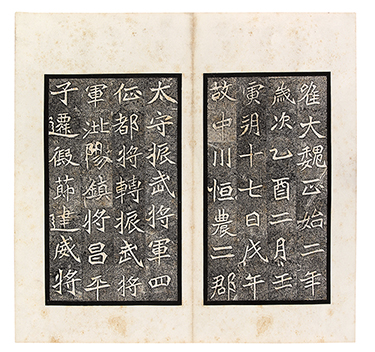 唯大魏正始二年
歲次乙酉二月壬
寅朔十七日戊午
故中川恒農二郡
太守振武將軍四
征都將轉振武將
軍沘陽鎮將昌平
子遷假節建威將